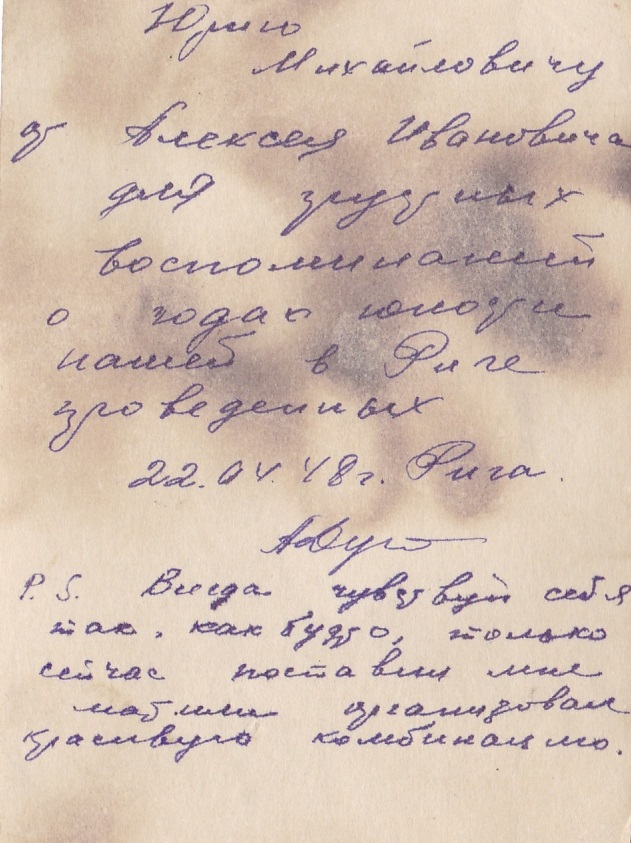 Юрию
Михайловичу
от Алексея Ивановича
для грустных
воспоминаний
о годах юности
нашей в Риге
проведенных
22.04.48г. Рига.
P.S. Всегда чувствуй себя
так, как будто, только
сейчас поставил мне
мат или организовал
красивую комбинацию.